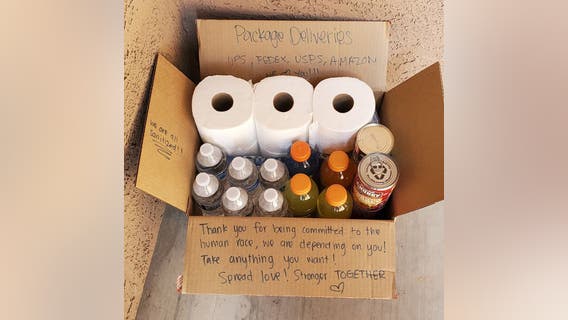 Package Deliveries
UPS, FEDEX, USPS, AMAZON
you!!!
we are all
sanitized!!
Thank you for being committed to the
human race, we are depending on you!
Take anything you want!
Spread love! Stronger TOGETHER